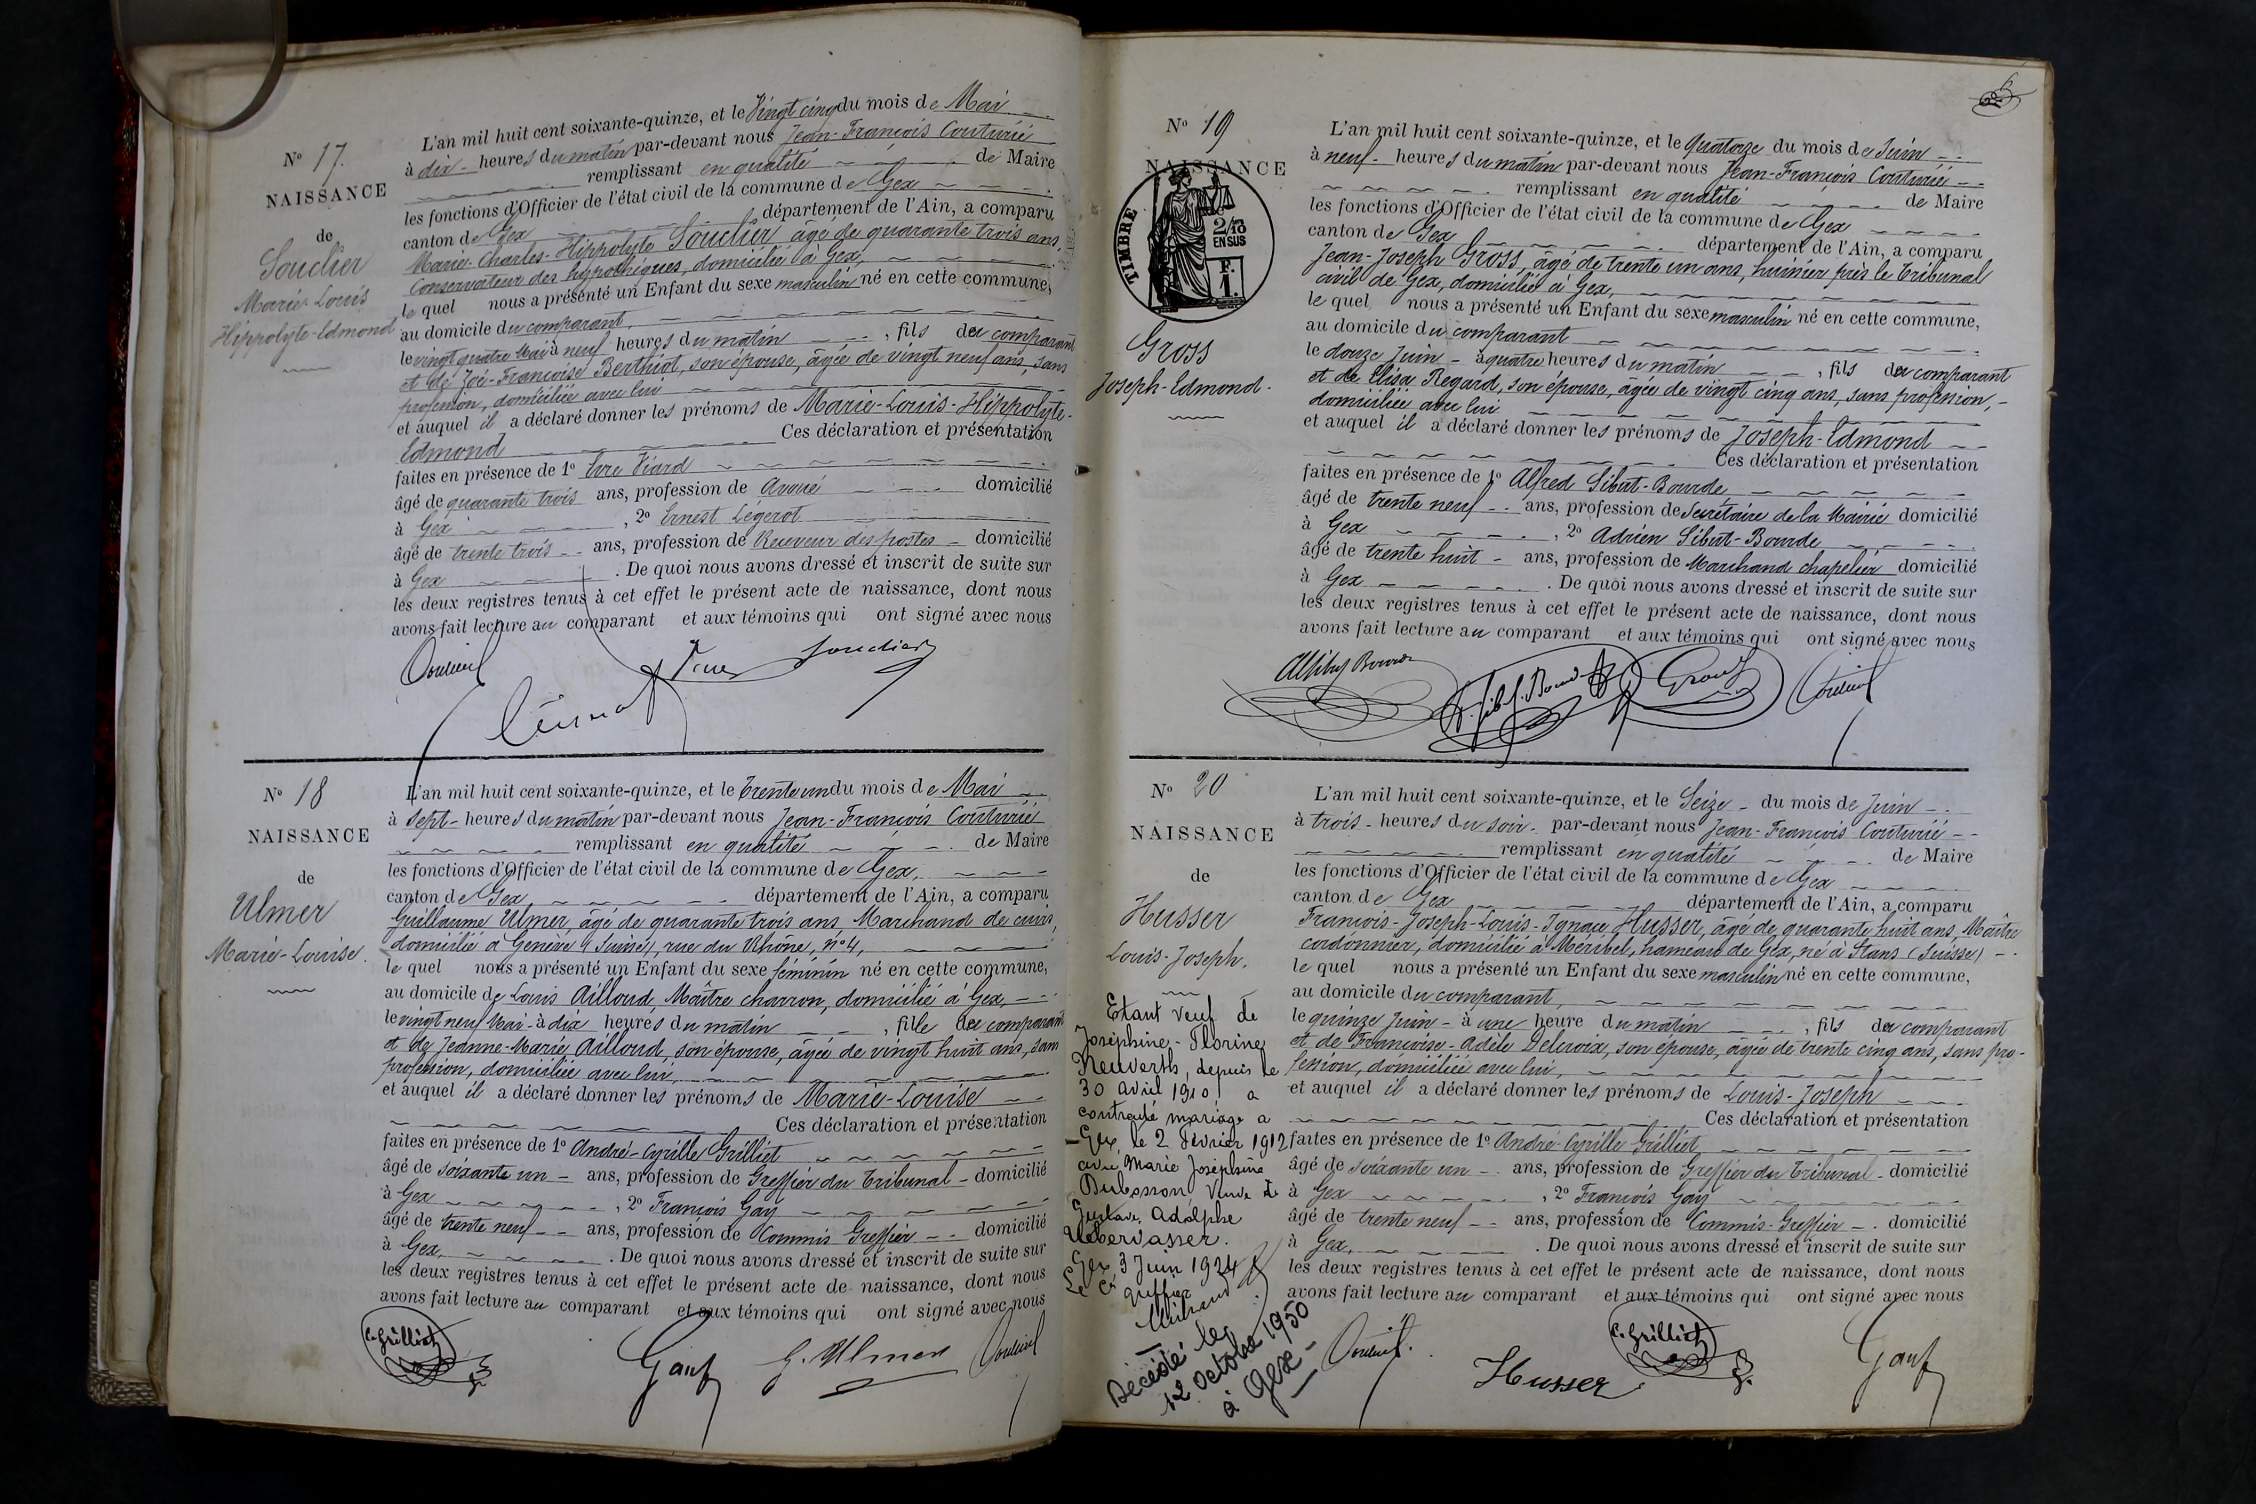 N° 17.
NAISSANCE
de
Souclier
Marie-Louis
Hippolyte-Edmond
L'an mil huit cent soixante-quinze, et le Vingt cinq du mois de Mai
à dix heures du matin par-devant nous Jean-François Couturié
remplissant en qualité de Maire
les fonctions d'Officier de l'état civil de la commune de Gex
canton de Gex département de l'Ain, a comparu
Marie-Charles-Hippolyte Souclier âgé de quarante trois ans,
Conservateur des hypothèques, domicilié à Gex,
le quel nous a présenté un Enfant du sexe masculin né en cette commune,
au domicile du comparant,
le vingt quatre Mai à neuf heures du matin, fils du comparant
et de Zoé-Françoise Berthiot, son épouse, âgée de vingt neuf ans, sans
profession, domiciliée avec lui
et auquel il a déclaré donner les prénoms de Marie-Louis-Hippolyte-
Edmond Ces déclaration et présentation
faites en présence de 1° Viard
âgé de quarante trois ans, profession de Avoué domicilié
à Gex, 2° Ernest Légerot
âgé de trente trois ans, profession de Receveur des postes domicilié
à Gex. De quoi nous avons dressé et inscrit de suite sur
les deux registres tenus à cet effet le présent acte de naissance, dont nous
avons fait lecture au comparant et aux témoins qui ont signé avec nous
Souclier
N° 18
NAISSANCE
de
Ulmer
Marie-Louise.
L'an mil huit cent soixante-quinze, et le Trente un du mois de Mai
à sept heures du matin par-devant nous Jean-François Couturié
remplissant en qualité de Maire
les fonctions d'Officier de l'état civil de la commune de Gex,
canton de Gex département de l'Ain, a comparu
Guillaume Ulmer, âgé de quarante trois ans, Marchand de cuirs,
domicilié à Genève (Suisse), rue du Rhône, n° 4,
le quel nous a présenté un Enfant du sexe féminin né en cette commune,
au domicile de Louis Ailloud, Maître charron, domicilié à Gex,
le vingt neuf Mai à dix heures du matin, fille du comparant
et de Jeanne-Marie Ailloud, son épouse, âgée de vingt huit ans, sans
profession, domiciliée avec lui,
et auquel il a déclaré donner les prénoms de Marie-Louise
Ces déclaration et présentation
faites en présence de 1° André-Cyrille Grilliet
âgé de soixante un ans, profession de Greffier du Tribunal domicilié
à Gex, 2° François Gay
âgé de trente neuf ans, profession de Commis Greffier domicilié
à Gex,. De quoi nous avons dressé et inscrit de suite sur
les deux registres tenus à cet effet le présent acte de naissance, dont nous
avons fait lecture au comparant et aux témoins qui ont signé avec nous
C. Grilliet
Gay G. Ulmer
6
N° 19
NAISSANCE
TIMBRE
2/10
EN SUS
F.
1.
Gross
Joseph-Edmond.
L'an mil huit cent soixante-quinze, et le Quatorze du mois de Juin
à neuf heures du matin par-devant nous Jean-François Couturié
remplissant en qualité de Maire
les fonctions d'Officier de l'état civil de la commune de Gex
canton de Gex département de l'Ain, a comparu
Jean-Joseph Gross, âgé de trente un ans, huissier près le Tribunal
civil de Gex, domicilié à Gex,
le quel nous a présenté un Enfant du sexe masculin né en cette commune,
au domicile du comparant
le douze Juin à quatre heures du matin, fils du comparant
et de Elisa Regard, son épouse, âgée de vingt cinq ans, sans profession,
domiciliée avec lui
et auquel il a déclaré donner les prénoms de Joseph-Edmond
Ces déclaration et présentation
faites en présence de 1° Alfred Sibut-Bourde,
âgé de trente neuf ans, profession de Secrétaire de la Mairie domicilié
à Gex, 2° Adrien Sibut-Bourde
âgé de trente huit ans, profession de Marchand chapelier domicilié
à Gex. De quoi nous avons dressé et inscrit de suite sur
les deux registres tenus à cet effet le présent acte de naissance, dont nous
avons fait lecture au comparant et aux témoins qui ont signé avec nous
N° 20
NAISSANCE
de
Husser
Louis-Joseph.
Etant veuf de
Joséphine-Florine
Neuverth, depuis le
30 avril 1910, a
contracté mariage à
Gex le 2 Février 1912
avec Marie Joséphine
Dubosson veuve de
Gustave Adolphe
Uebervasser.
Gex 3 Juin 1924
Le Cs Greffier
Décédé le
12 Octobre 1950
à Gex
L'an mil huit cent soixante-quinze, et le Seize du mois de Juin
à trois heures du soir par-devant nous Jean-François Couturié
remplissant en qualité de Maire
les fonctions d'Officier de l'état civil de la commune de Gex
canton de Gex département de l'Ain, a comparu
François-Joseph-Louis-Ignace Husser, âgé de quarante huit ans, Maître
cordonnier, domicilié à Méribel, hameau de Gex, né à Stans (Suisse)
le quel nous a présenté un Enfant du sexe masculin né en cette commune,
au domicile du comparant,
le quinze Juin à une heure du matin, fils du comparant
et de Françoise-Adèle Delacroix, son épouse, âgée de trente cinq ans, sans pro-
fession, domiciliée avec lui,
et auquel il a déclaré donner les prénoms de Louis-Joseph
Ces déclaration et présentation
faites en présence de 1° André-Cyrille Grilliet
âgé de soixante un ans, profession de Greffier du Tribunal domicilié
à Gex, 2° François Gay
âgé de trente neuf ans, profession de Commis-Greffier domicilié
à Gex,. De quoi nous avons dressé et inscrit de suite sur
les deux registres tenus à cet effet le présent acte de naissance, dont nous
avons fait lecture au comparant et aux témoins qui ont signé avec nous
Husser
C. Grilliet
Gay